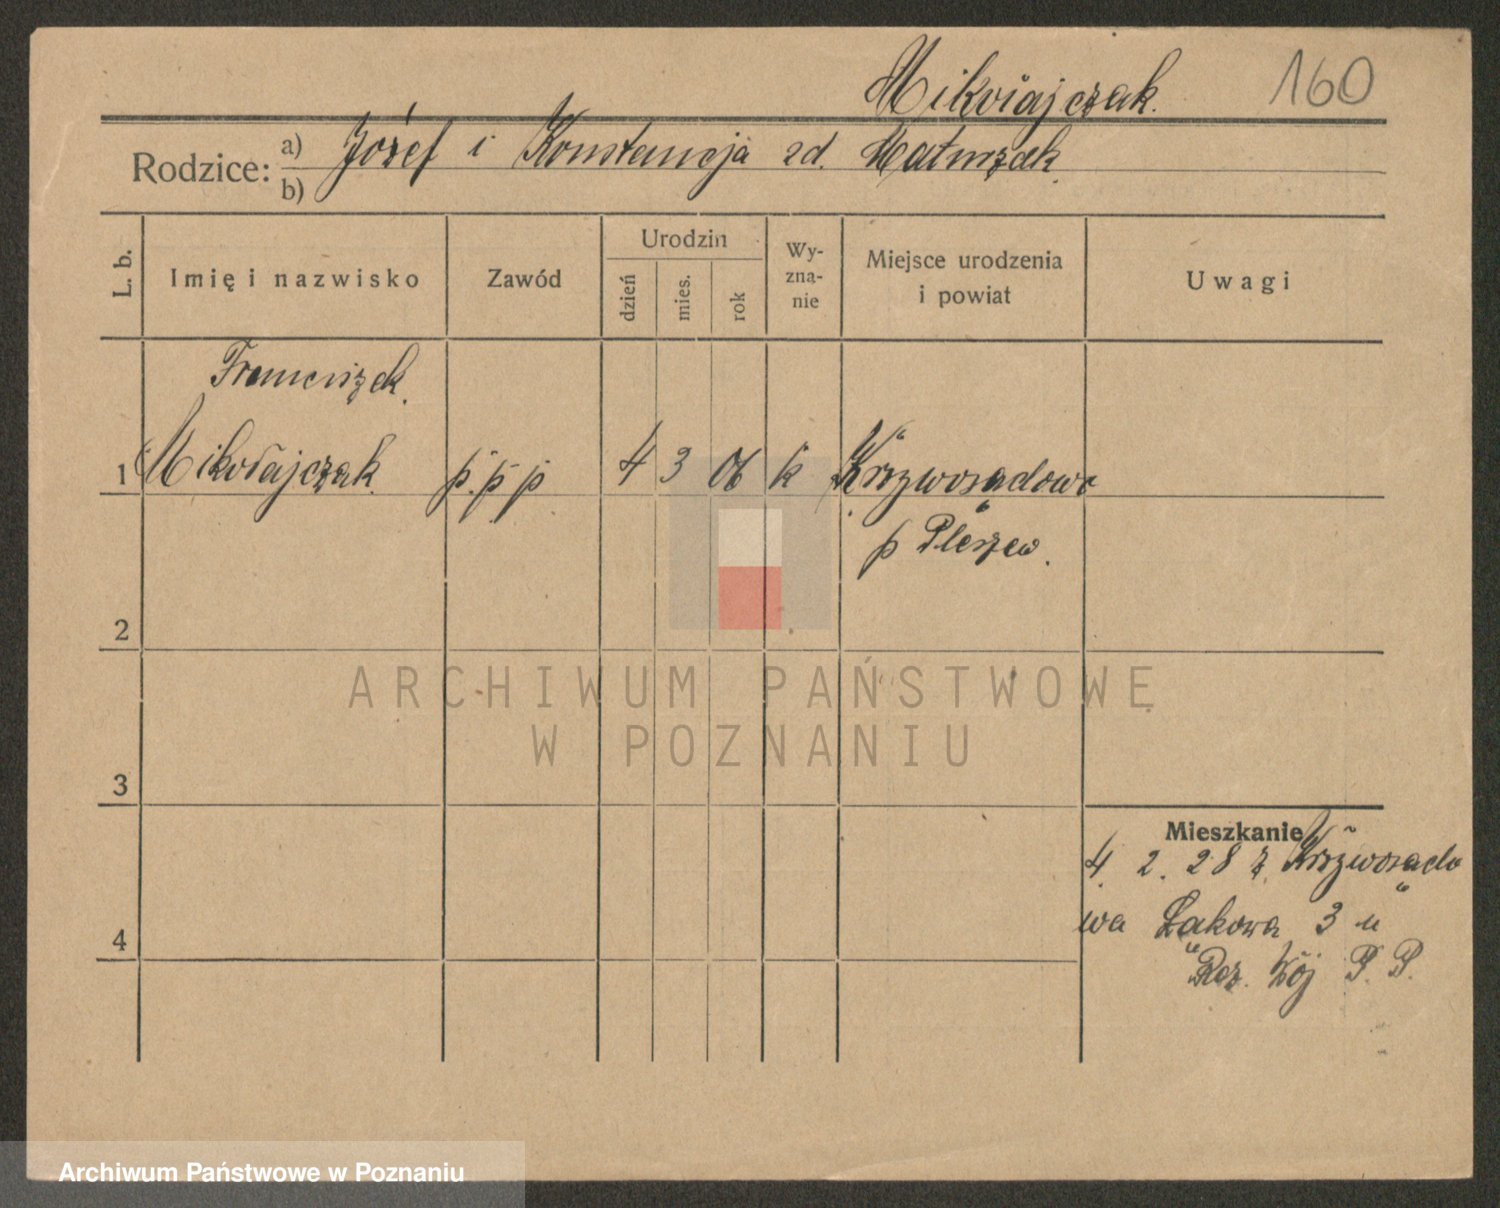 Mikołajczak. 160
Rodzice: a) Józef i Konstancja zd. Matuszak
b)
L. b. Imię i nazwisko Zawód Urodzin dzień mies. rok Wy-zna-nie Miejsce urodzenia i powiat Uwagi
Franciszek
1 Mikołajczak p. p. p 4 3 06 k Krzywosądowo
p Pleszew.
2
ARCHIWUM PAŃSTWOWE
W POZNANIU
3
Mieszkanie
4. 2. 28 z Krzywosądo
wa Łąkowa 3 u
4 Rez. Wój P. P.
Archiwum Państwowe w Poznaniu